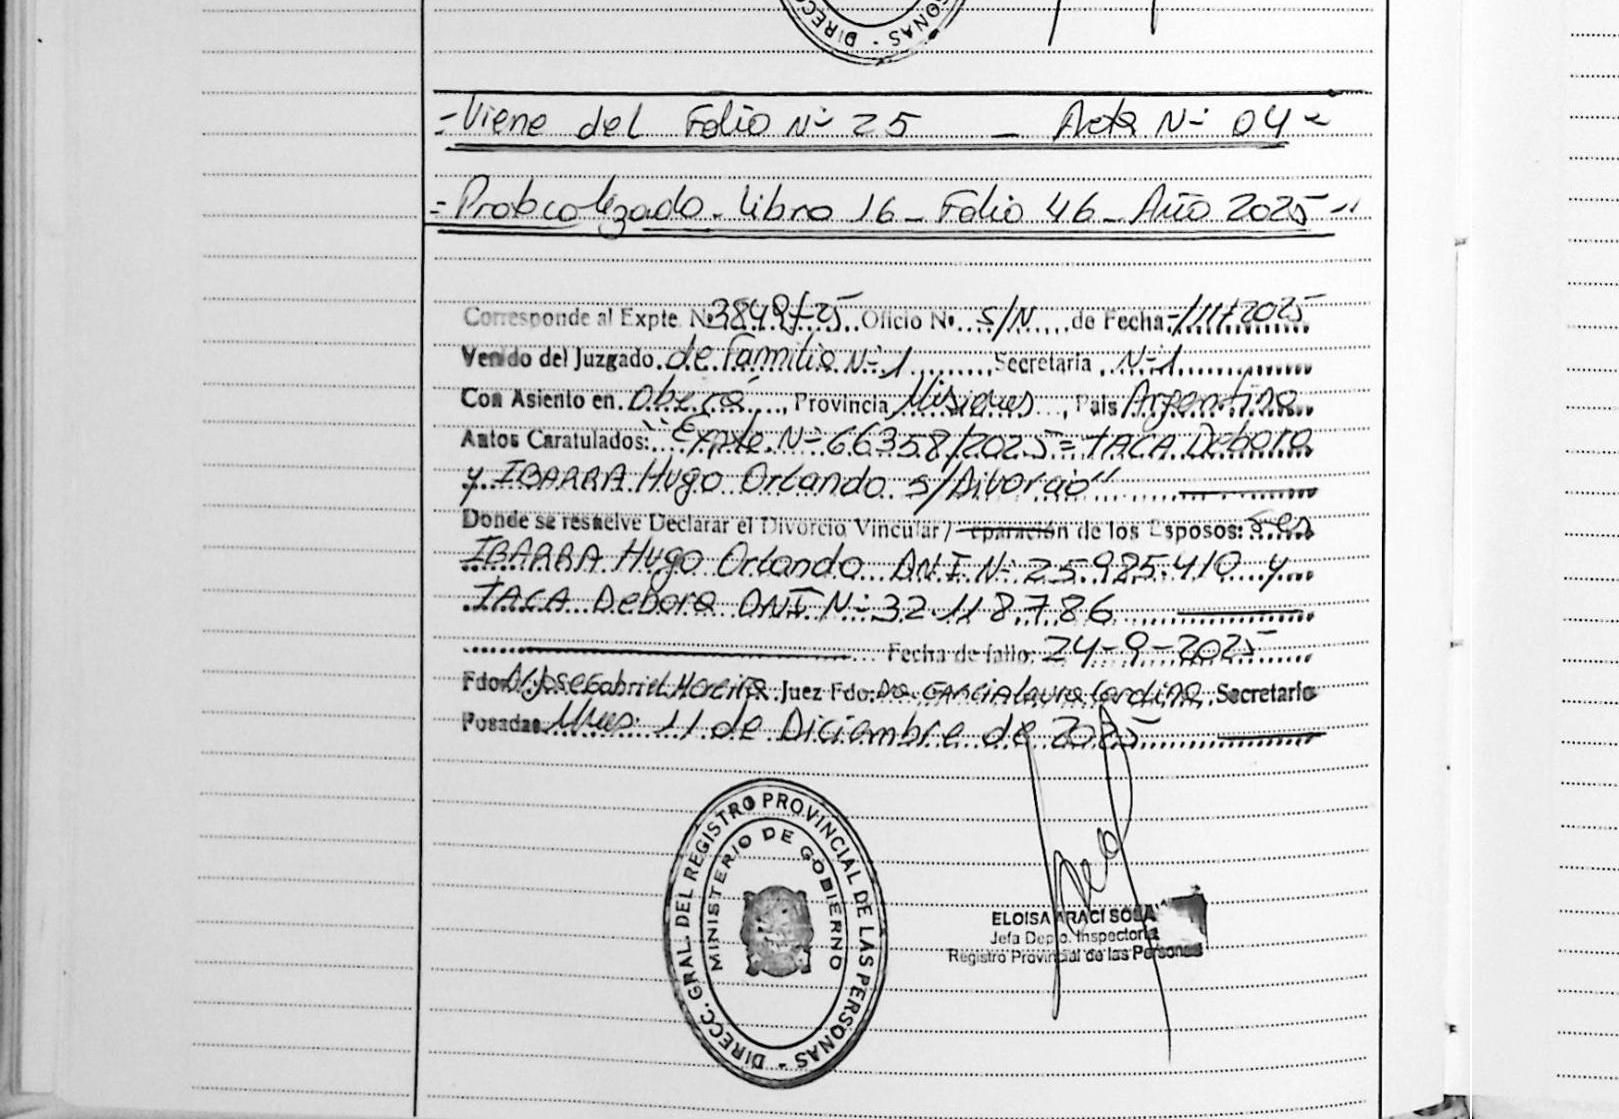 DIRECC
PERSONAS - DIREC
=Viene del Folio Nº 25 _ Acta Nº 04=
=Protocolizado - Libro 16 - Folio 46 - Año 2025-"
Corresponde al Expte. Nº 3849/25 Oficio Nº S/N de Fecha -/11/2025
Venido del Juzgado de Familia Nº 1 Secretaria Nº 1
Con Asiento en Oberá, Provincia Misiones, Pais Argentina
Autos Caratulados: "Expte. Nº 66358/2025 = TACA Debora
y IBARRA Hugo Orlando s/Divorcio"
Donde se resuelve Declarar el Divorcio Vincular / eparación de los Esposos: Sres
IBARRA Hugo Orlando DNI Nº 25.985.410 y
TACA Debora DNI Nº 32.118.786
Fecha de fallo: 24-9-2025
Fdo: Jose Gabriel Moreira Juez Fdo: Dra. GARCIA Laura Secretario
Posadas, Mnes. 11 de Diciembre de 2025
DIRECC. GRAL. DEL REGISTRO PROVINCIAL DE LAS PERSONAS -
MINISTERIO DE GOBIERNO
ELOISA ARACI SOSA
Jefa Depto. Inspectoria
Registro Provincial de las Personas